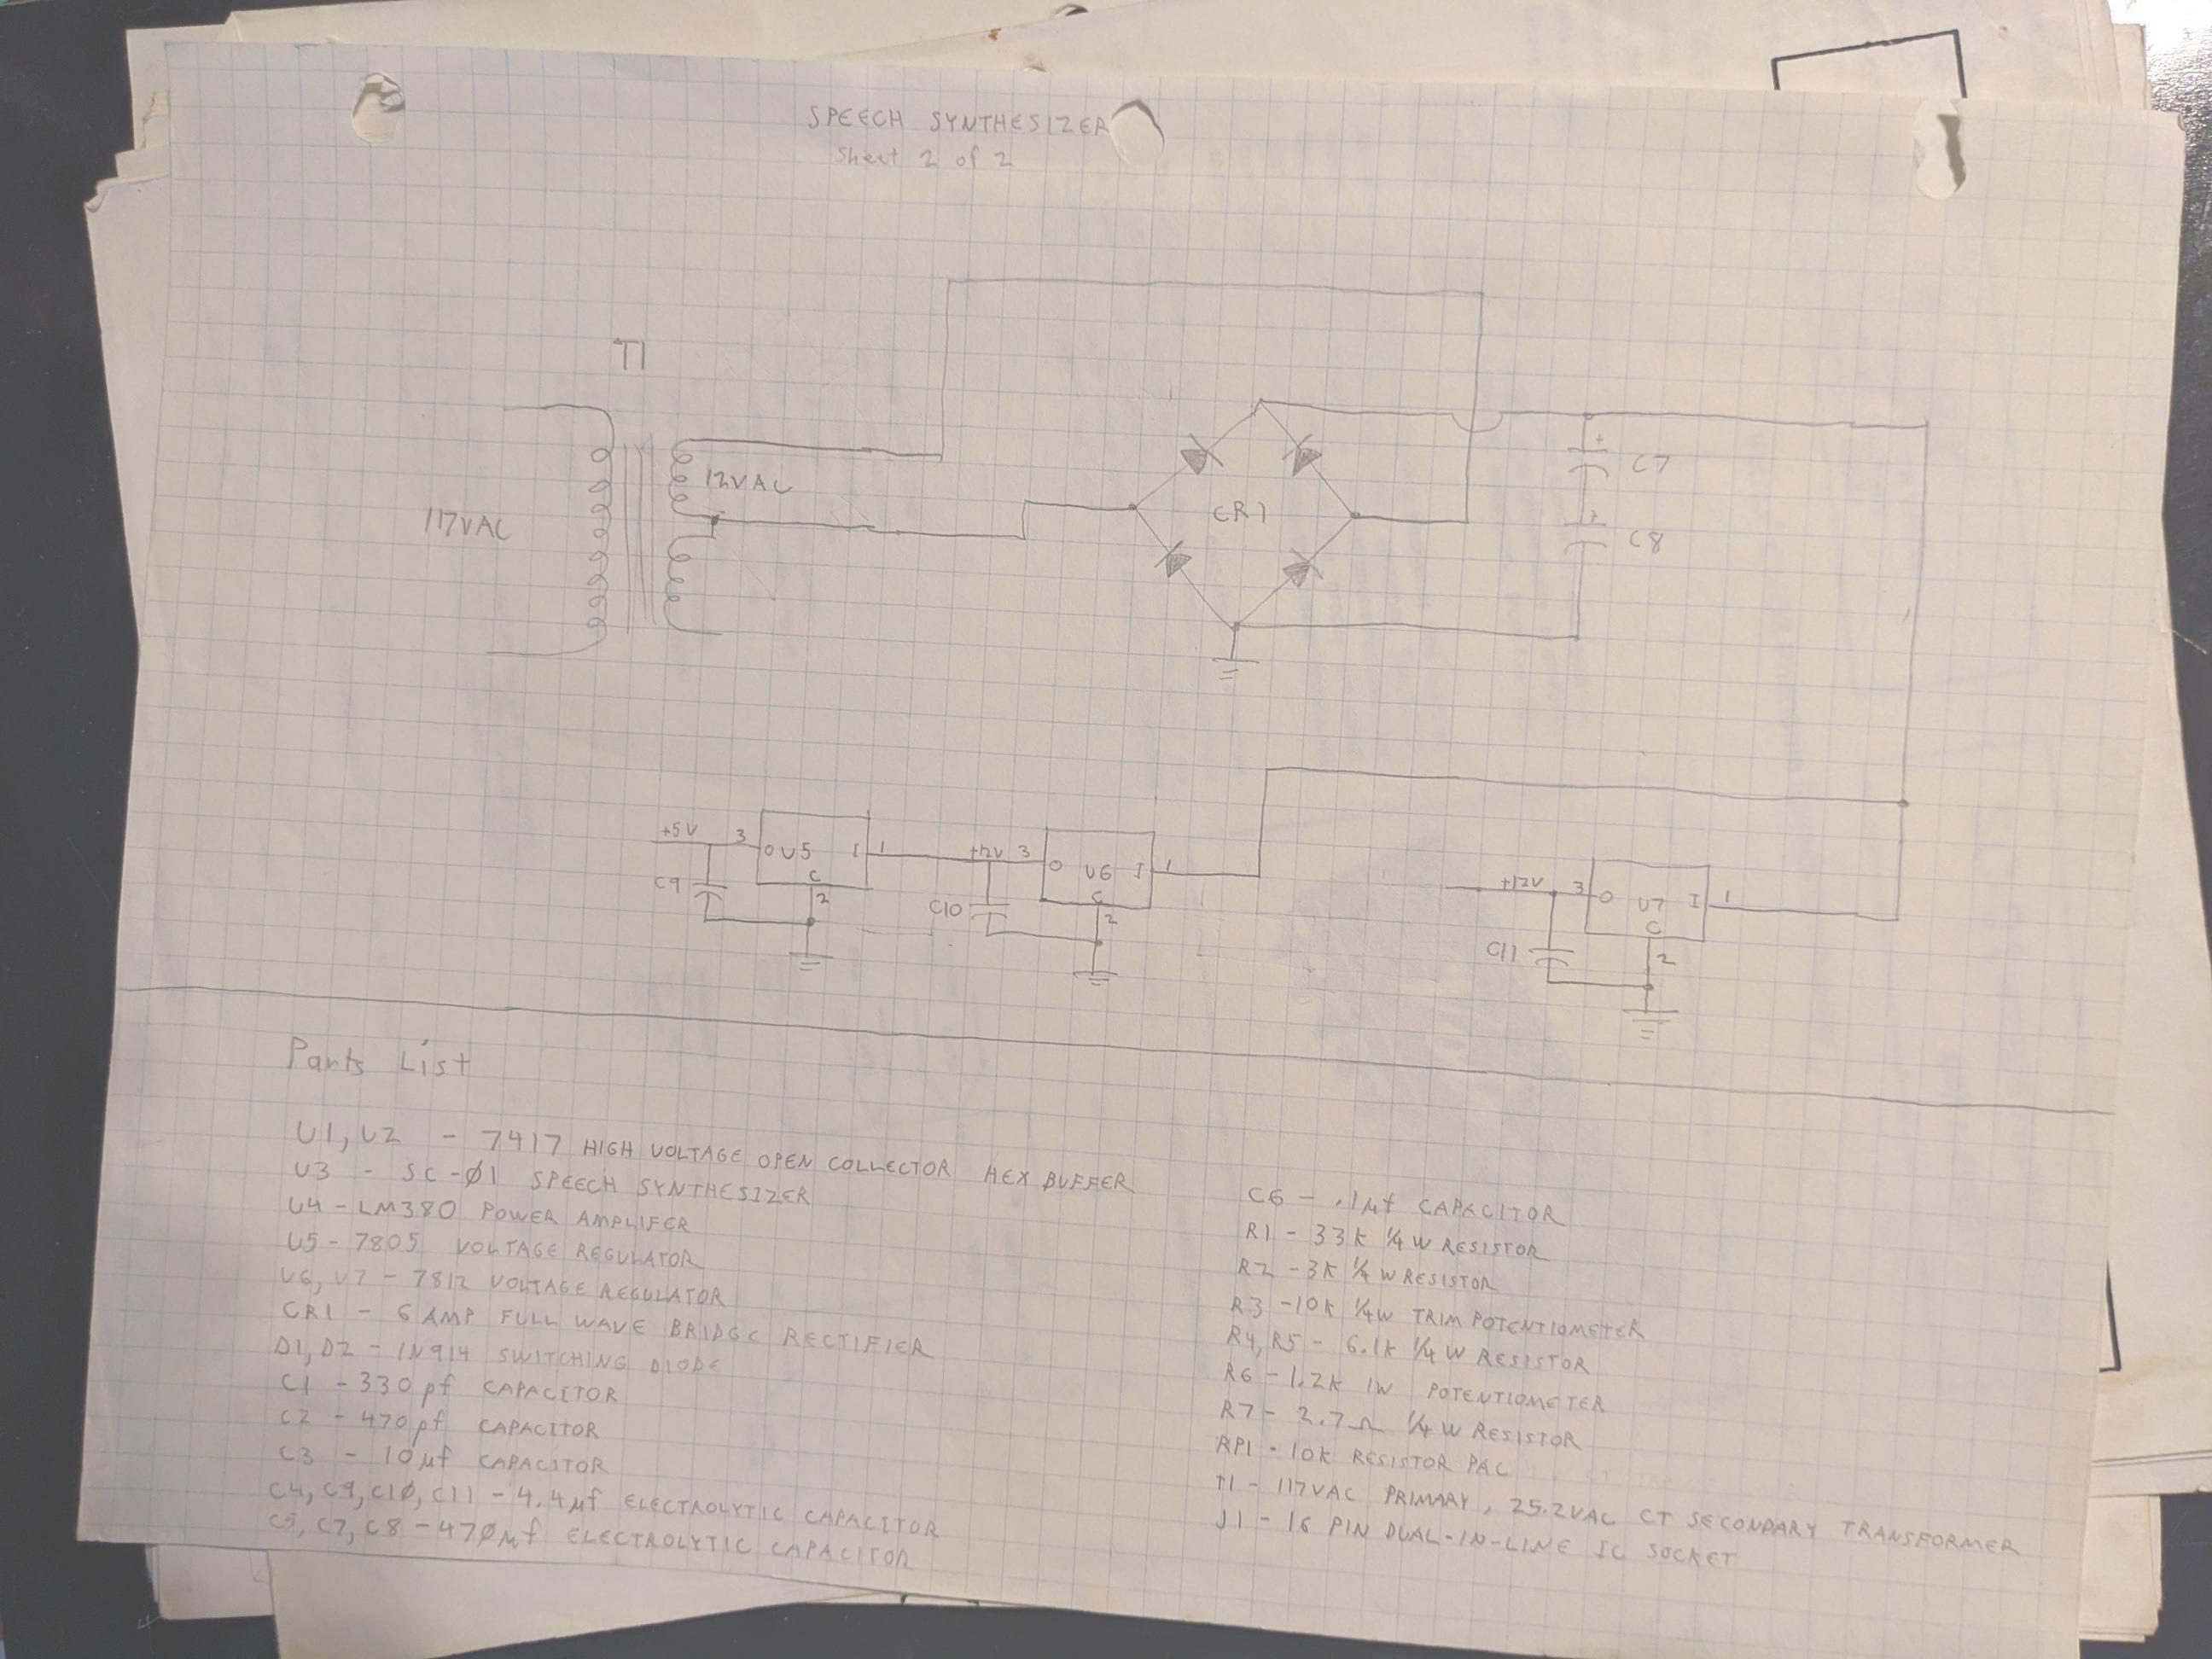 SPEECH SYNTHESIZER
Sheet 2 of 2
T1
12VAC
117VAC
CR1
C7
C8
+5V 3 O U5 I 1
C
2
C9
+12V 3 O U6 I 1
C
2
C10
+12V 3 O U7 I 1
C
2
C11
Parts List
U1, U2 - 7417 HIGH VOLTAGE OPEN COLLECTOR HEX BUFFER
U3 - SC-Ø1 SPEECH SYNTHESIZER
U4 - LM380 POWER AMPLIFER
U5 - 7805 VOLTAGE REGULATOR
U6, U7 - 7812 VOLTAGE REGULATOR
CR1 - 6 AMP FULL WAVE BRIDGE RECTIFIER
D1, D2 - 1N914 SWITCHING DIODE
C1 - 330 pf CAPACITOR
C2 - 470 pf CAPACITOR
C3 - 10 µf CAPACITOR
C4, C9, C1Ø, C11 - 4.4 µf ELECTROLYTIC CAPACITOR
C5, C7, C8 - 47Ø µf ELECTROLYTIC CAPACITOR
C6 - .1 µf CAPACITOR
R1 - 33K ¼ W RESISTOR
R2 - 3K ¼ W RESISTOR
R3 - 10K ¼W TRIM POTENTIOMETER
R4, R5 - 6.1K ¼ W RESISTOR
R6 - 1.2K 1W POTENTIOMETER
R7 - 2.7Ω ¼ W RESISTOR
RP1 - 10K RESISTOR PAC
T1 - 117VAC PRIMARY, 25.2VAC CT SECONDARY TRANSFORMER
J1 - 16 PIN DUAL-IN-LINE IC SOCKET